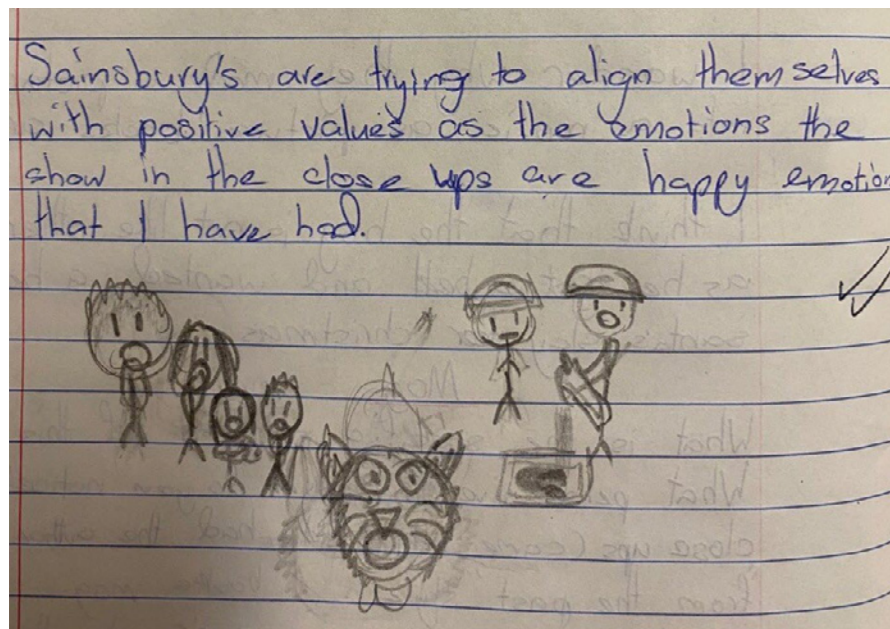 Sainsbury's are trying to align themselves
with positive values as the emotions the
show in the close ups are happy emotion
that I have had.